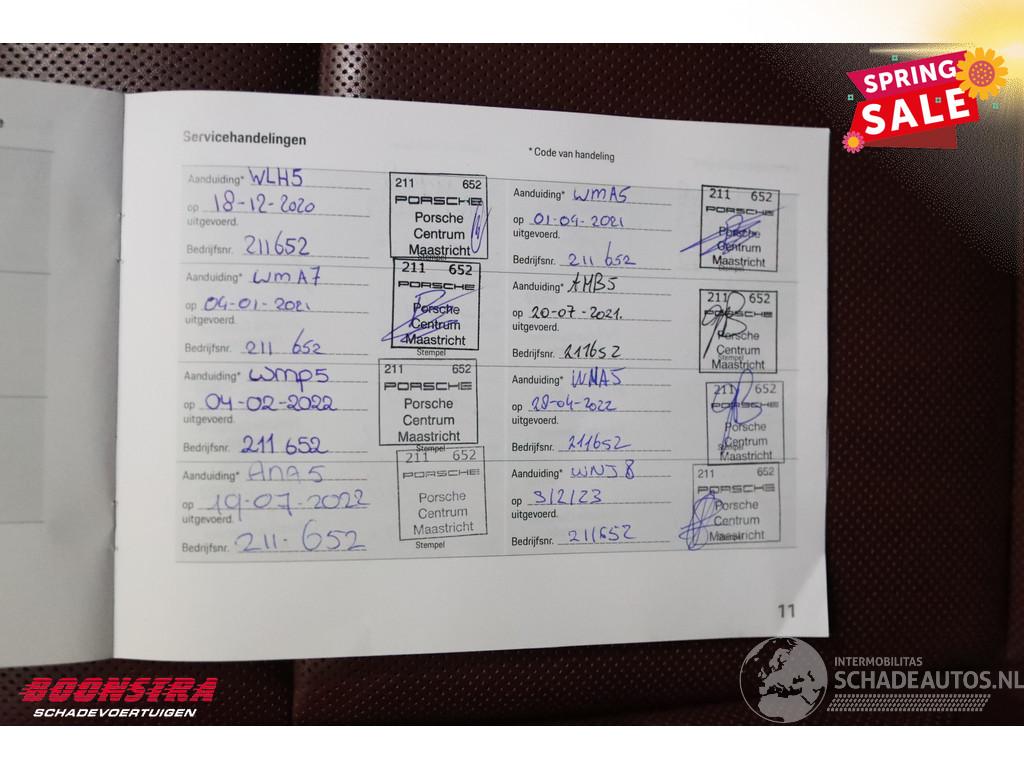 SPRING
SALE
Servicehandelingen
* Code van handeling
Aanduiding* WLH5
op 18-12-2020
uitgevoerd.
Bedrijfsnr. 211652
211 652
PORSCHE
Porsche
Centrum
Maastricht
Stempel
Aanduiding* WMA5
op 01-04-2021
uitgevoerd.
Bedrijfsnr. 211 652
211 652
PORSCHE
Porsche
Centrum
Maastricht
Stempel
Aanduiding* WMA7
op 04-01-2021
uitgevoerd.
Bedrijfsnr. 211 652
211 652
PORSCHE
Porsche
Centrum
Maastricht
Stempel
Aanduiding* AMB5
op 20-07-2021.
uitgevoerd.
Bedrijfsnr. 211652
211 652
PORSCHE
Porsche
Centrum
Maastricht
Stempel
Aanduiding* WMP5
op 04-02-2022
uitgevoerd.
Bedrijfsnr. 211 652
211 652
PORSCHE
Porsche
Centrum
Maastricht
Stempel
Aanduiding* WNA5
op 28-04-2022
uitgevoerd.
Bedrijfsnr. 211652
211 652
PORSCHE
Porsche
Centrum
Maastricht
Stempel
Aanduiding* Ana5
op 19-07-2022
uitgevoerd.
Bedrijfsnr. 211-652
211 652
PORSCHE
Porsche
Centrum
Maastricht
Stempel
Aanduiding* WNJ8
op 3/2/23
uitgevoerd.
Bedrijfsnr. 211652
211 652
PORSCHE
Porsche
Centrum
Maastricht
Stempel
11
BOONSTRA
SCHADEVOERTUIGEN
INTERMOBILITAS
SCHADEAUTOS.NL